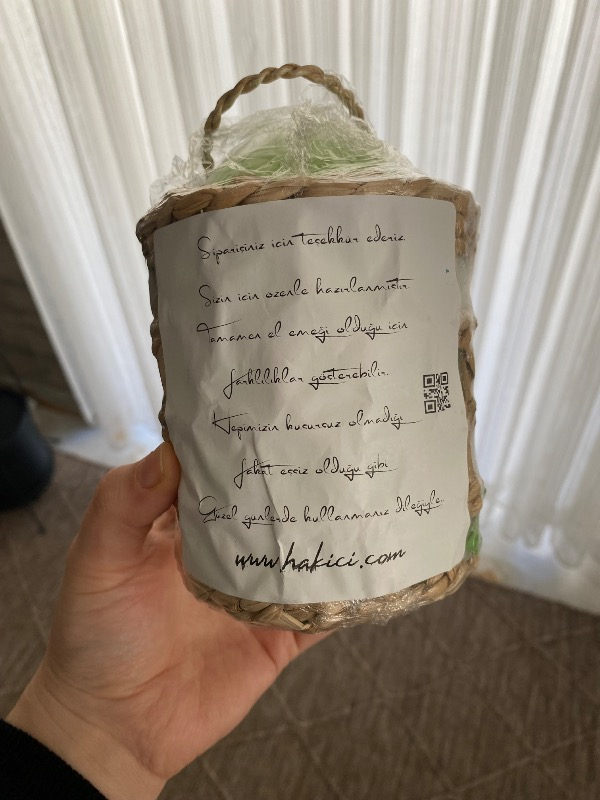 Siparişiniz için Teşekkür ederiz.
Sizin için özenle hazırlanmıştır.
Tamamen el emeği olduğu için
farklılıklar gösterebilir.
Hepimizin kusursuz olmadığı
fakat eşsiz olduğu gibi
Güzel günlerde kullanmanız dileğiyle..
www.hakici.com